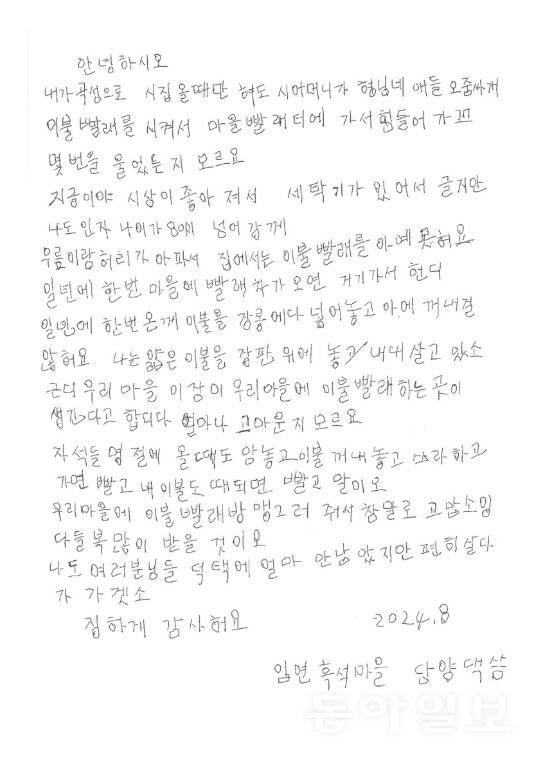 안녕하시오
내가 곡성으로 시집 올때만 혀도 시어머니가 형님네 애들 오줌싸게
이불 빨래를 시켜서 마을 빨래터에 가서 힘들어 가꼬
몇번을 울었튼지 모르요
지금이야 시상이 좋아 져서 세탁기가 있어서 글지만
나도 인자 나이가 80이 넘어 강께
무릎이랑 허리가 아파서 집에서는 이불 빨래를 아예 못허요
일년에 한번 마을에 빨래차가 오면 거기가서 헌디
일년에 한번 온께 이불을 장롱에다 넣어놓고 아에 꺼내질
않허요 나는 얇은 이불을 장판 위에 놓고 내내 살고 있소
근디 우리 마을 이장이 우리마을에 이불 빨래 하는 곳이
생긴다고 합디다 얼마나 고마운지 모르요
자석들 명절에 올때도 암농고 이불 꺼내 놓고 쓰라하고
가면 빨고 내 이불도 때되면 빨고 할이오
우리마을에 이불 빨래방 맹그러 줘서 참말로 고맙소잉
다들 복 많이 받을 것이요
나도 여러분님들 덕택에 얼마 안남았지만 편히 살다
가 가겟소
징하게 감사허요 2024.8
입면 흑석마을 담양댁 씀
동아일보